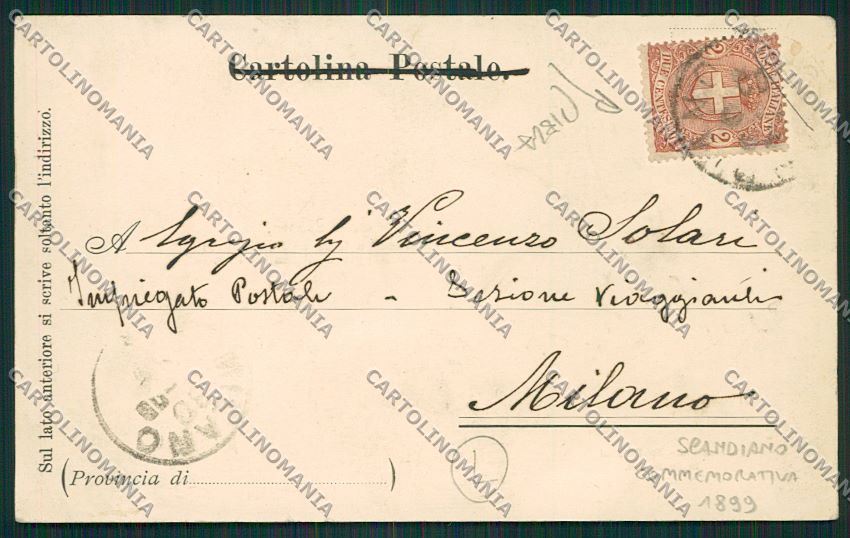 Cartolina Postale.
POSTE ITALIANE
2 DUE CENT. 2
Sul lato anteriore si scrive soltanto l'indirizzo.
A Egregio Sig Vincenzo Solari
Impiegato Postale - Sezione Viaggianti
Milano
(Provincia di)
MILANO
L
SCANDIANO
COMMEMORATIVA
1899
CARTOLINOMANIA